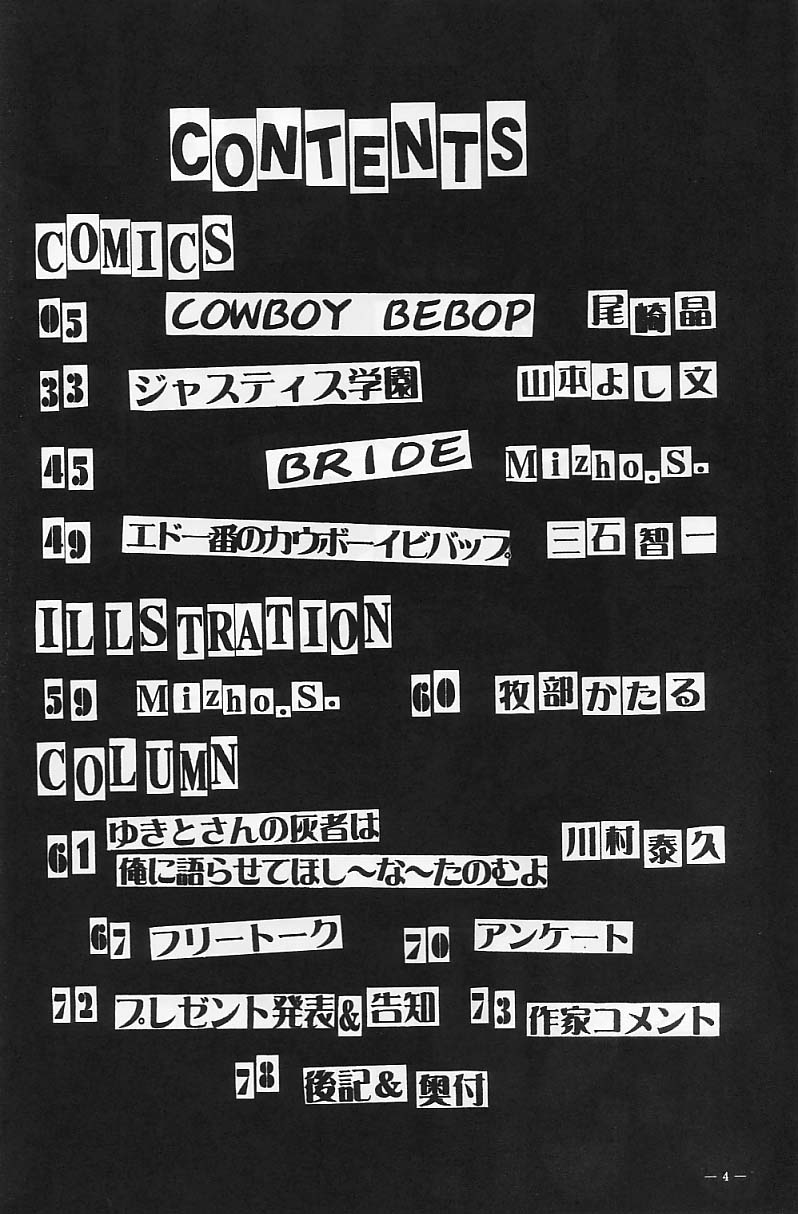 CONTENTS
COMICS
05 COWBOY BEBOP 尾崎晶
33 ジャスティス学園 山本よし文
45 BRIDE Mizho.S.
49 エド一番のカウボーイビバップ。 三石智一
ILLSTRATION
59 Mizho.S. 60 牧部かたる
COLUMN
61 ゆきとさんの灰者は 川村泰久
俺に語らせてほし〜な〜たのむよ
67 フリートーク 70 アンケート
72 プレゼント発表&告知 73 作家コメント
78 後記&奥付
— 4 —